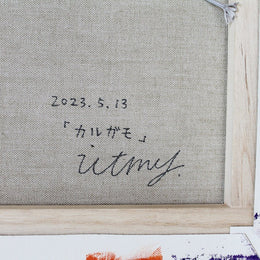 2023.5.13
「カルガモ」